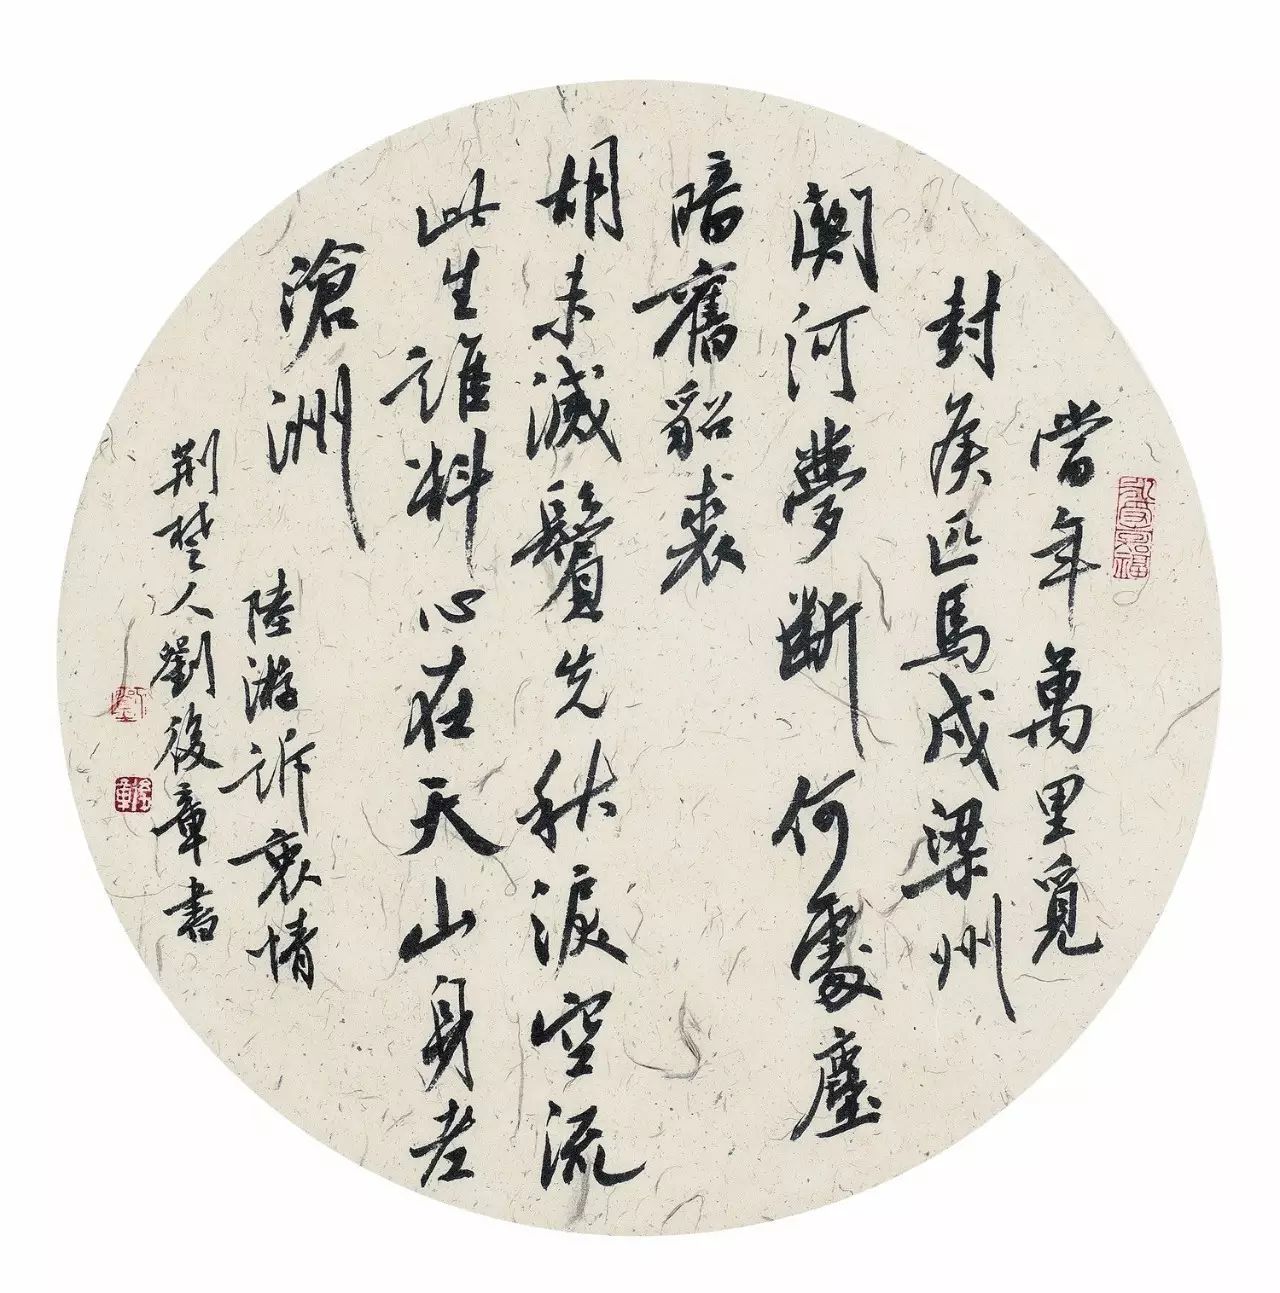 當年萬里覓
封侯匹馬戍梁州
關河夢斷何處塵
暗舊貂裘
胡未滅鬢先秋淚空流
此生誰料心在天山身老
滄洲
陸游訴衷情
荆楚人劉後章書